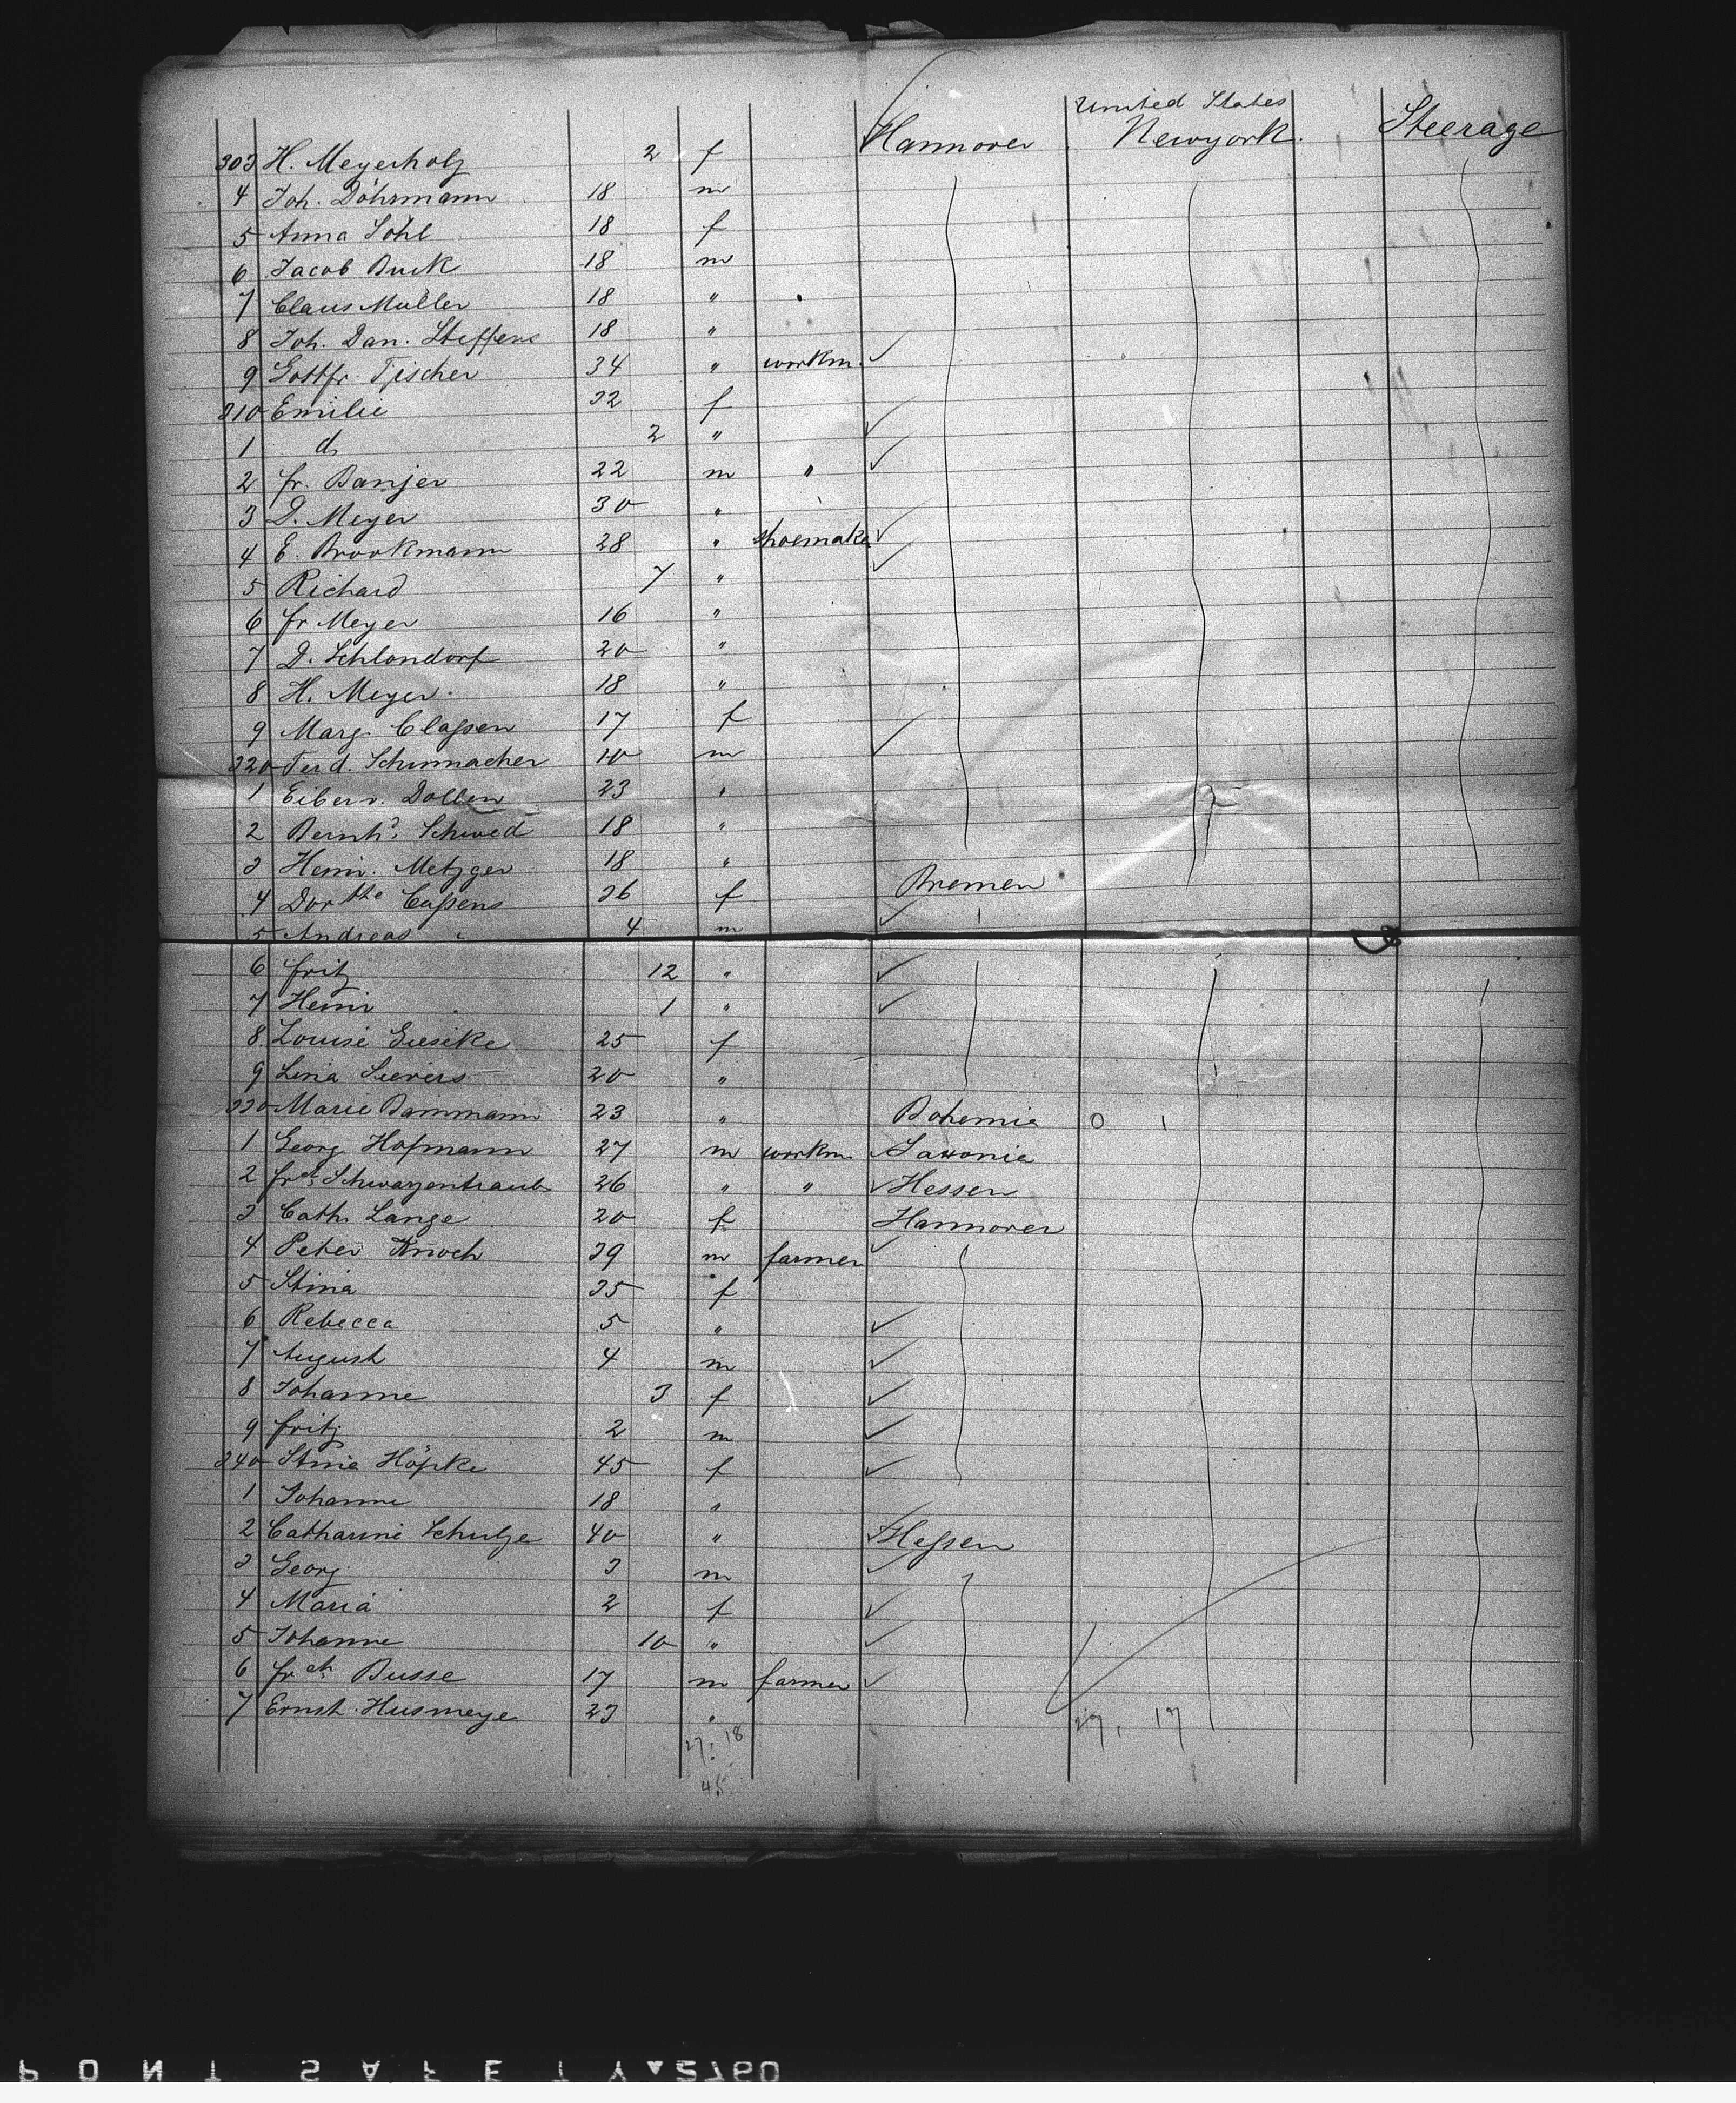 United States
303 H. Meyerholz 2 f Hannover Newyork. Steerage
4 Joh. Döhrmann 18 m
5 Anna Söhl 18 f
6 Jacob Buck 18 m
7 Claus Müller 18 "
8 Joh. Dan. Steffens 18 "
9 Gottfr. Tischer 34 " workm. ✓
310 Emilie 32 f
1 do 2 " ✓
2 fr. Banjer 22 m " ✓
3 D. Meyer 30 "
4 E. Brookmann 28 " shoemaker ✓
5 Richard 7 " ✓
6 fr Meyer 16 "
7 D. Schlondorf 20 "
8 H. Meyer 18 "
9 Marg. Claßen 17 f
320 Ferd. Schumacher 10 m ✓
1 Eiber v. Dollen 23 "
2 Bernhd. Schwed 18 "
3 Heinr. Metzger 18 "
4 Dorthe Caßens 36 f Bremen
5 Andreas " 4 m ✓
6 fritz 12 " ✓
7 Heinr 1 " ✓
8 Louise Gieseke 25 f
9 Lina Sievers 20 "
330 Marie Bammann 23 " Bohemia 0 1
1 Georg Hofmann 27 m workm. Saxonia
2 frch. Schwarzentraub 26 " " ✓ Hessen
3 Cath. Lange 20 f Hannover
4 Peter Knoch 39 m farmer ✓
5 Stina 35 f
6 Rebecca 5 " ✓
7 August 4 m ✓
8 Johanne 3 f ✓
9 fritz 2 m ✓
340 Stina Höpke 45 f ✓
1 Johanne 18 "
2 Catharine Schulze 40 " ✓ Heßen
3 Georg 3 m ✓
4 Maria 2 f ✓
5 Johanne 10 " ✓
6 frch Busse 17 m farmer ✓
7 Ernst Husmeyer 23 "
27. 18 27. 17
45
PONT SAFETY 2760